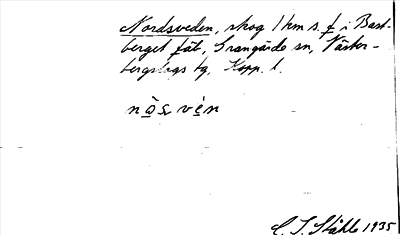 Nordsveden, skog 1 km s. f i Bast-
berget fåt, Grangärde sn, Väster-
bergslags tg, Kopp. l.
C. I. Ståhle 1935